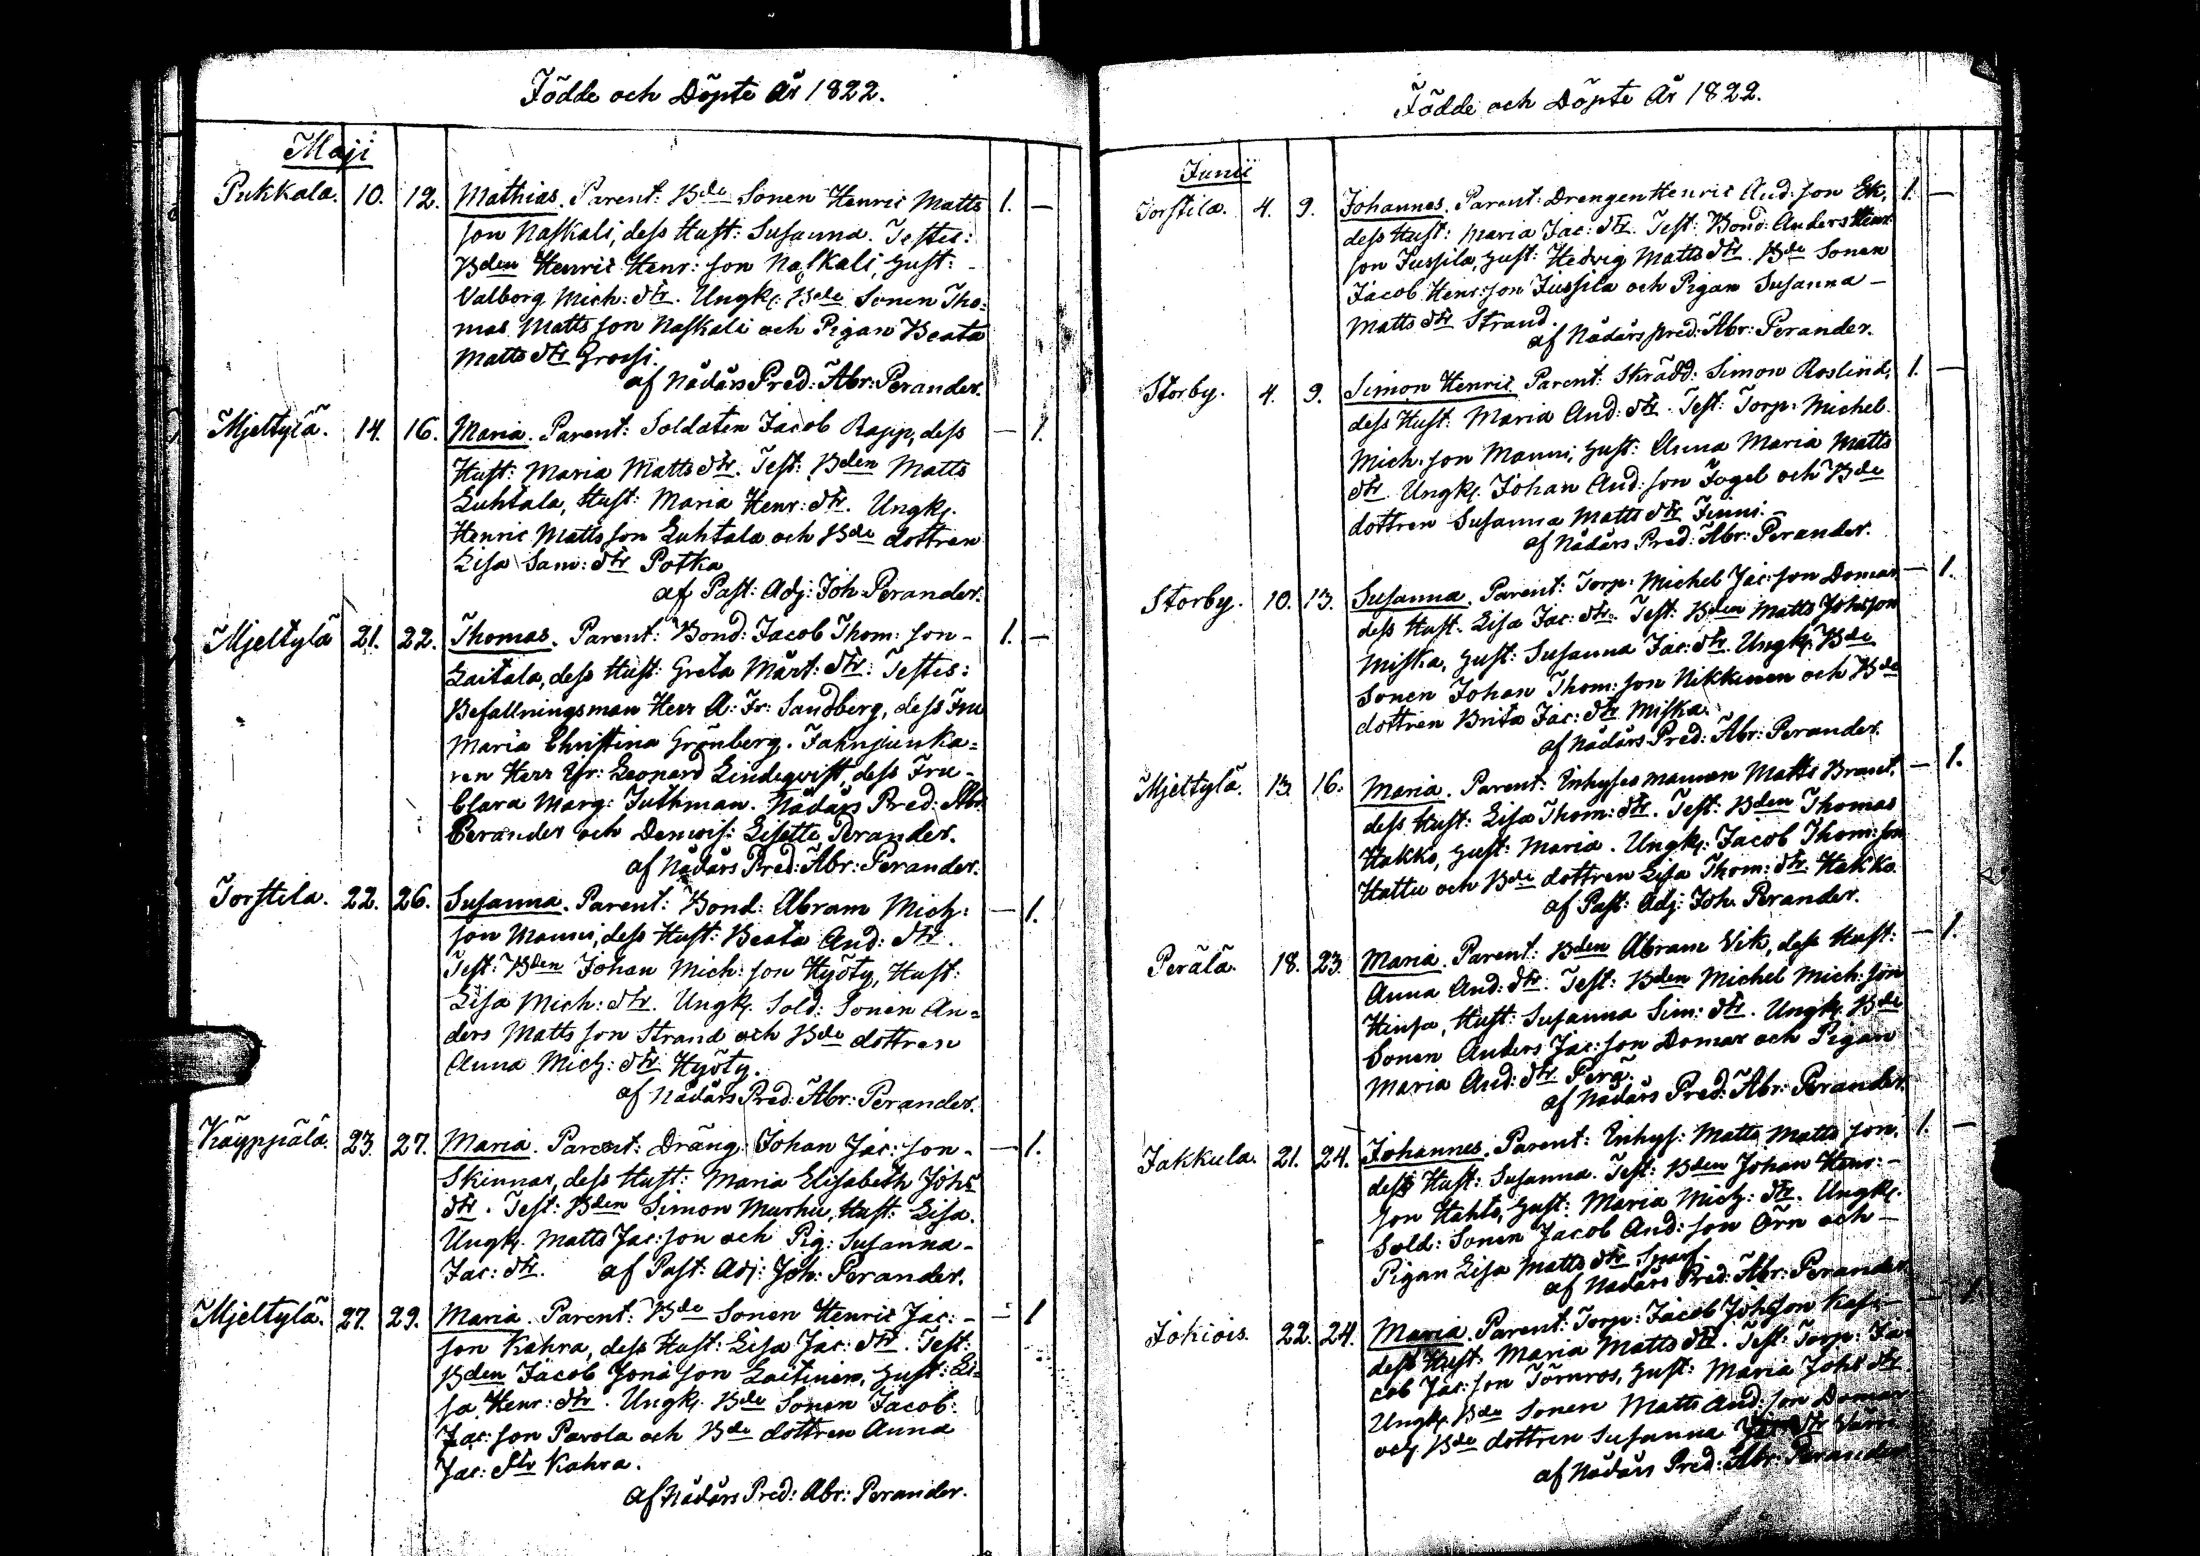 Födde och Döpte År 1822.
Maji
Pukkala. 10. 12. Mathias. Parent: Bde Sonen Henric Matts 1. —
son Naskali, dess Hust: Susanna. Testes:
Bden Henric Henr: son Naskali, Hust: -
Valborg Mich: dtr. Ungk. Bde Sonen Tho=
mas Matts son Naskali och Pigan Beata
Matts dtr Grossi.
af Nådårs Pred: Abr: Perander.
Mjeltylä. 14. 16. Maria. Parent: Soldaten Jacob Rapp, dess — 1.
Hust: Maria Matts dtr. Test: Bden Matts
Luhtala, Hust: Maria Henr: dtr. Ungk.
Henric Matts son Luhtala och Bde dottren
Lisa Sam: dtr Potka
af Past: Adj: Joh: Perander.
Mjeltylä 21. 22. Thomas. Parent: Bond: Jacob Thom: son - 1. —
Laitala, dess Hust: Greta Mårt: dtr. Testes:
Befallningsman Herr A: Fr: Sandberg, dess Fru
Maria Christina Grönberg. Fahnjunka=
ren Herr Leonard Lindeqvist, dess Fru -
Clara Marg: Juthman. Nådårs Pred: Abr:
Perander och Demois: Lisette Perander.
af Nådårs Pred: Abr: Perander.
Torstila. 22. 26. Susanna. Parent: Bond: Abram Mich: — 1.
son Manni, dess Hust: Beata And: dtr.
Test: Bden Johan Mich: son Hyöty, Hust:
Lisa Mich: dtr. Ungk. Sold: Sonen An=
ders Matts son Strand och Bde dottren
Anna Mich: dtr Hyöty.
af Nådårs Pred: Abr: Perander.
Käyppälä. 23. 27. Maria. Parent: Dräng: Johan Jac: son - — 1.
Skinnar, dess Hust: Maria Elisabeth Johs
dtr. Test: Bden Simon Murhu, Hust: Lisa.
Ungk. Matts Jac: son och Pig: Susanna -
Jac: dtr. af Past: Adj: Joh: Perander.
Mjeltylä. 27. 29. Maria. Parent: Bde Sonen Henric Jac: - — 1
son Kahra, dess Hust: Lisa Jac: dtr. Test:
Bden Jacob Jona son Laitinen, Hust: Li=
sa Henr: dtr. Ungk. Bde Sonen Jacob
Jac: son Pavola och Bde dottren Anna
Jac: dtr Kahra.
af Nådårs Pred: Abr: Perander.
Födde och Döpte År 1822.
Junii
Torstila. 4. 9. Johannes. Parent: Drengen Henric And: son Ek, 1. —
dess Hust: Maria Jac: dtr. Test: Bond: Anders Henr:
son Jussila, Hust: Hedvig Matts dtr. Bde Sonen
Jacob Henr: son Jussila och Pigan Susanna -
Matts dtr Strand.
af Nådårs pred: Abr: Perander.
Storby. 4. 9. Simon Henric. Parent: Skrädd: Simon Roslind, 1. —
dess Hust: Maria And: dtr. Test: Torp: Michel
Mich: son Manni, Hust: Anna Maria Matts
dtr. Ungk. Johan And: son Fogel och Bde
dottren Susanna Matts dtr Junni. -
af Nådårs Pred: Abr: Perander.
Storby. 10. 13. Susanna. Parent: Torp: Michel Jac: son Domar — 1.
dess Hust: Lisa Jac: dtr. Test: Bden Matts Johs son
Miska, Hust: Susanna Jac: dtr. Ungk. Bde
Sonen Johan Thom: son Nikkinen och Bde
dottren Brita Jac: dtr Miska.
af Nådårs Pred: Abr: Perander.
Mjeltylä. 13. 16. Maria. Parent: Inhyses mannen Matts Brant, — 1.
dess Hust: Lisa Thom: dtr. Test: Bden Thomas
Hakko, Hust: Maria. Ungk: Jacob Thom: son
Hattu och Bde dottren Lisa Thom: dtr Hakko.
af Past: Adj: Joh: Perander.
Perälä. 18. 23. Maria. Parent: Bden Abram Vik, dess Hust: — 1.
Anna And: dtr. Test: Bden Michel Mich: son
Hinsa, Hust: Susanna Sim: dtr. Ungk. Bde
Sonen Anders Jac: son Domar och Pigan
Maria And: dtr Perä.
af Nådårs Pred: Abr: Perander.
Jakkula. 21. 24. Johannes. Parent: Inhys: Matts Matts son, 1. —
dess Hust: Susanna. Test: Bden Johan Henr: -
son Hahto, Hust: Maria Mich: dtr. Ungk.
Sold: Sonen Jacob And: son Örn och -
Pigan Lisa Matts dtr
af Nådårs Pred: Abr: Perander
Jokiois. 22. 24. Maria. Parent: Torp: Jacob Johs son — 1.
dess Hust: Maria Matts dtr. Test: Torp: Ja=
cob Jac: son Törnros, Hust: Maria Johs dtr
Ungk. Bde Sonen Matts And: son Domar
och Bde dottren Susanna
af Nådårs Pred: Abr: Perander